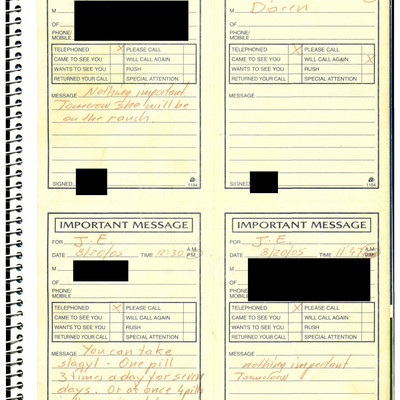 M
OF
PHONE/
MOBILE
TELEPHONED X PLEASE CALL
CAME TO SEE YOU WILL CALL AGAIN
WANTS TO SEE YOU RUSH
RETURNED YOUR CALL SPECIAL ATTENTION
MESSAGE Nothing important
Tomorrow she will be
on the ranch
SIGNED
1184
M Doren
OF
PHONE/
MOBILE
TELEPHONED PLEASE CALL
CAME TO SEE YOU WILL CALL AGAIN X
WANTS TO SEE YOU RUSH
RETURNED YOUR CALL SPECIAL ATTENTION
MESSAGE
SIGNED
1184
IMPORTANT MESSAGE
FOR J.E.
DATE 8/20/05 TIME 11:30 A.M. P.M.
M
OF
PHONE/
MOBILE
TELEPHONED X PLEASE CALL
CAME TO SEE YOU WILL CALL AGAIN
WANTS TO SEE YOU RUSH
RETURNED YOUR CALL SPECIAL ATTENTION
MESSAGE You can take
slagyl - One pill
3 times a day for seven
days. Or at once 4 pills
IMPORTANT MESSAGE
FOR J.E.
DATE 8/20/05 TIME 11:47 A.M. P.M.
M
OF
PHONE/
MOBILE
TELEPHONED X PLEASE CALL
CAME TO SEE YOU WILL CALL AGAIN
WANTS TO SEE YOU RUSH
RETURNED YOUR CALL SPECIAL ATTENTION
MESSAGE
nothing important
Tomorrow